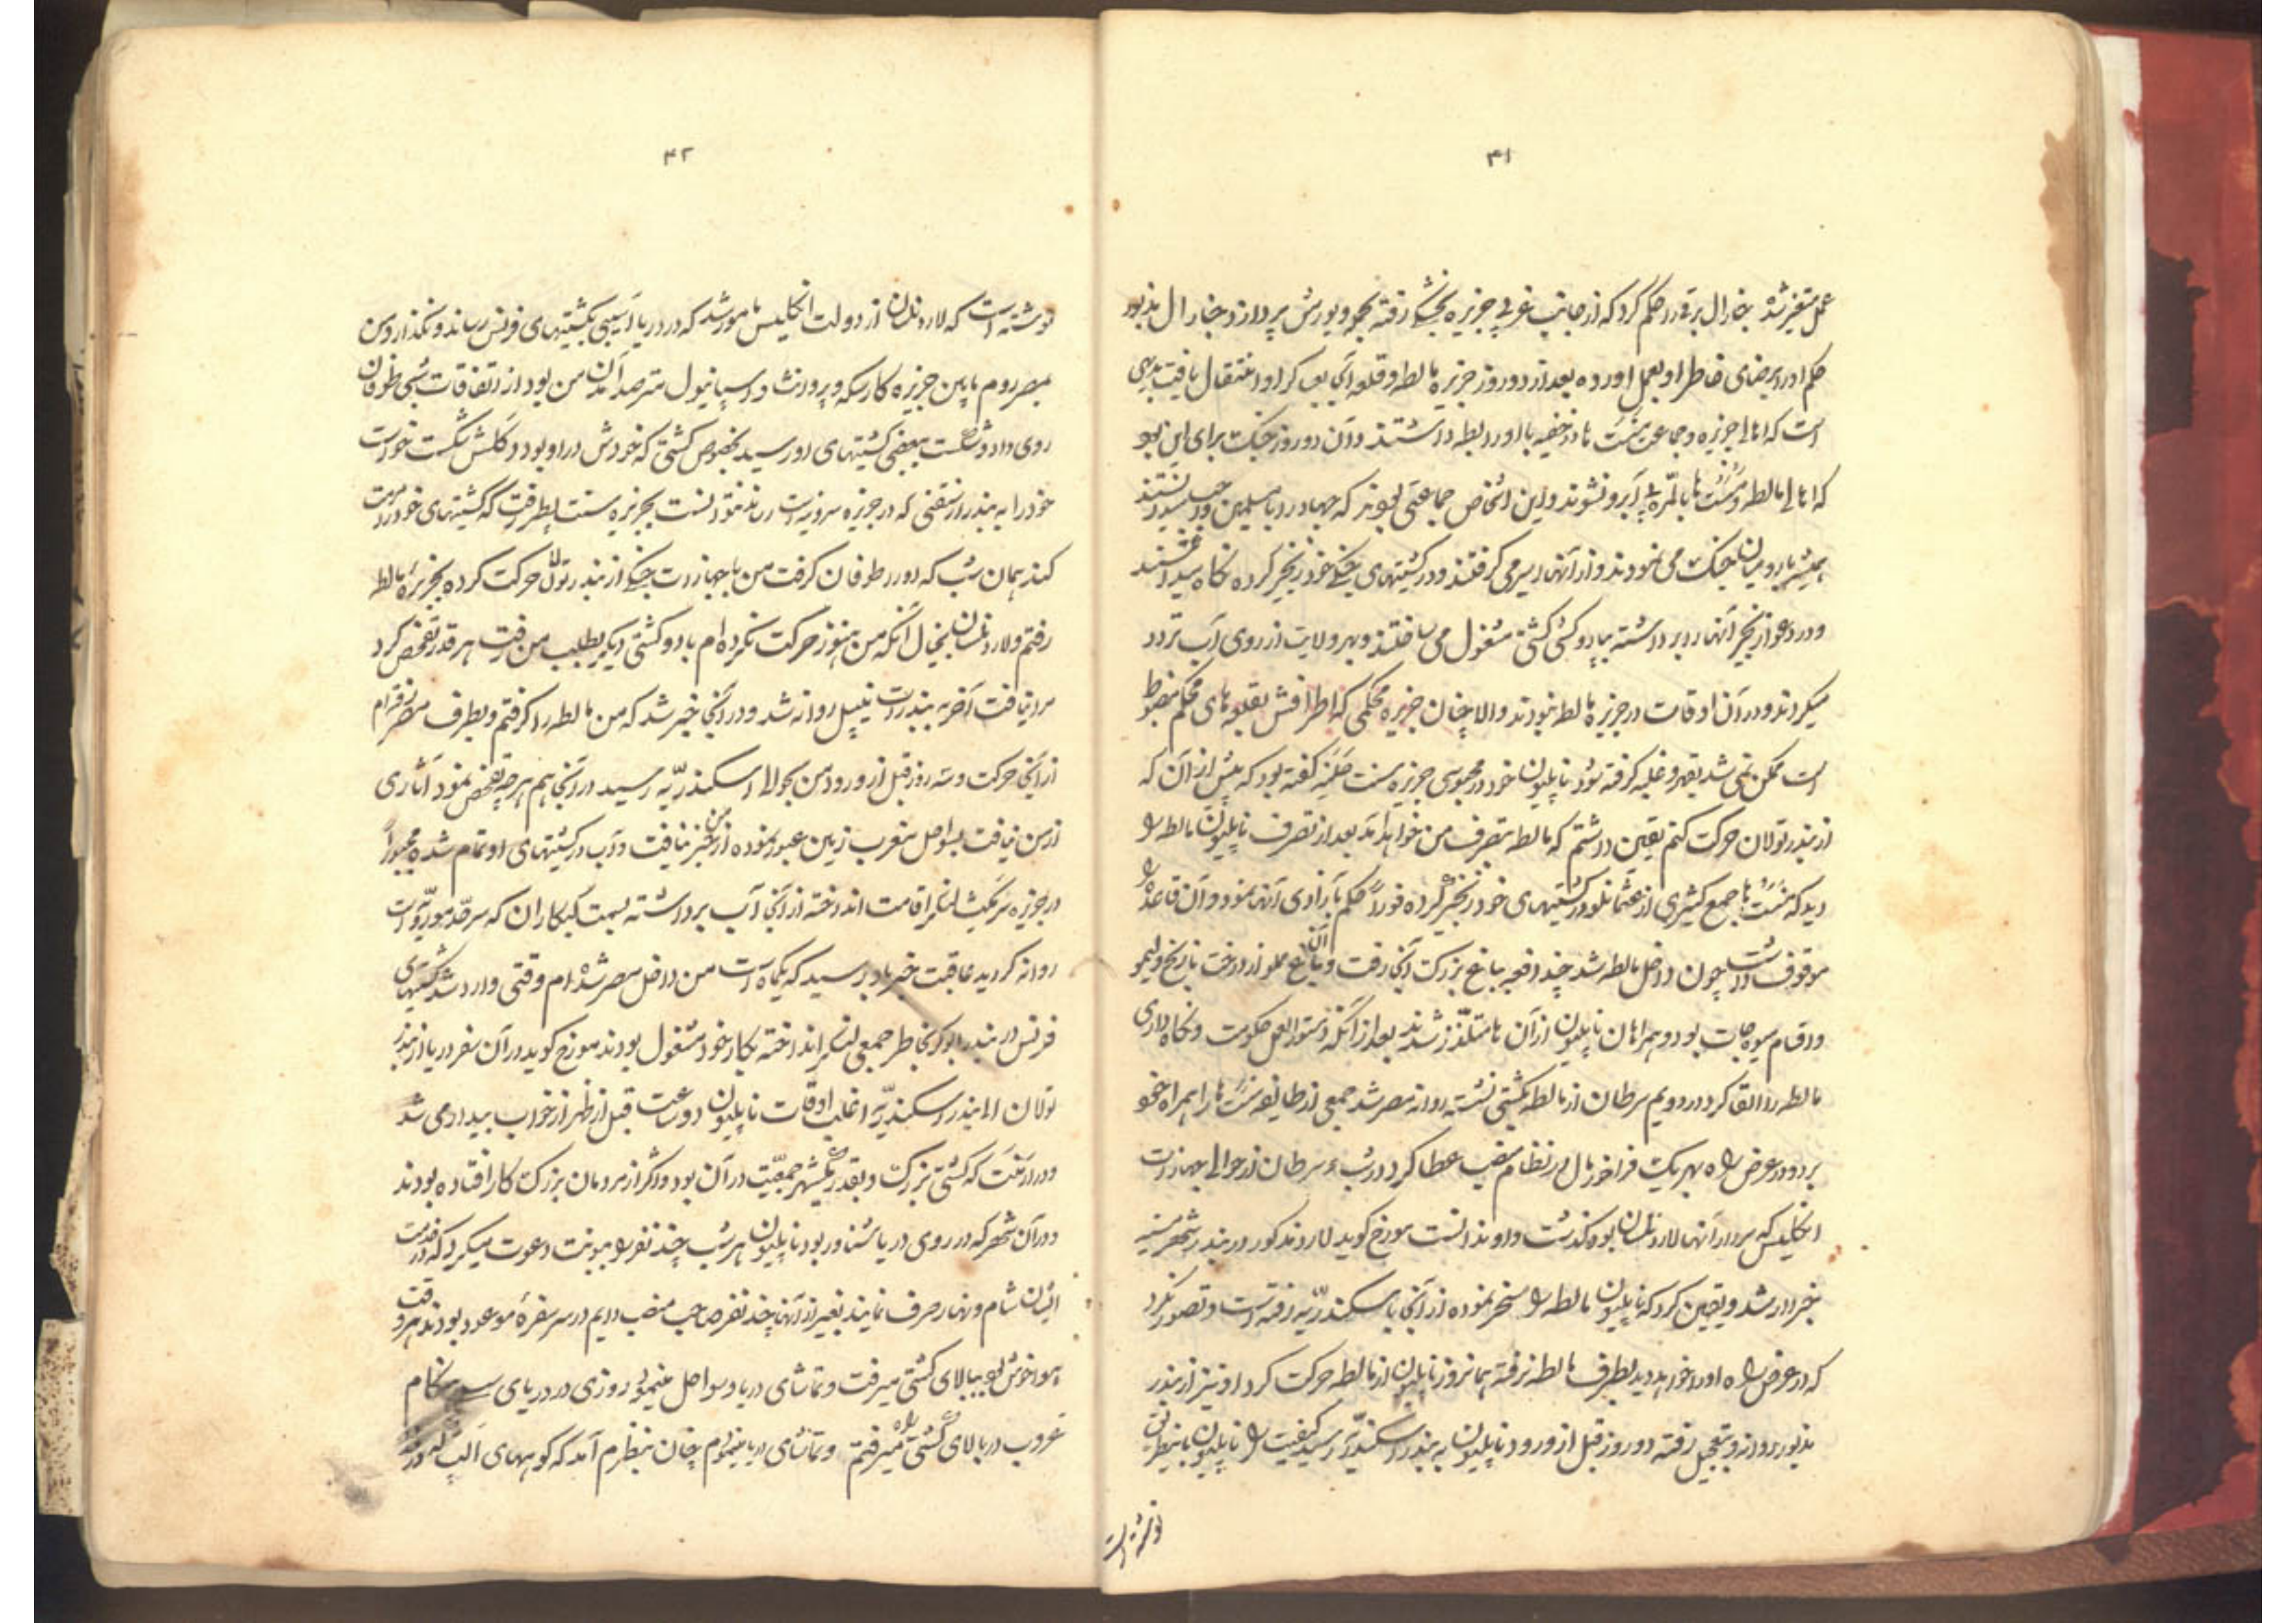 ۴۱
عمل متغیر شده جنرال برتیه را حکم کرد که از جانب غربی جزیره بخشکی رفته بهجوم و یورش پردازد جنرال مذبور
حکم او را برضای خاطر او بعمل اورده بعد از دو روز جزیره مالطه و قلعه آنجا بعساکر او انتقال یافت بدیهی
است که اهالی جزیره و جماعت منست ها در خفیه با او رابطه داشتند و آن دو روز جنگ برای این بود
که اهالی مالطه و منست ها بالمره بی آبرو نشوند و این اشخاص جماعتی بودند که جهاد را با مسلمین واجب میدانستند
همیشه با رومیان جنگ می نمودند و از آنها اسیر می گرفتند و در کشتیهای جنگی خود زنجیر کرده نگاه میداشتند
و در دعوا زنجیر آنها را برداشته بپارو کشی کشتی مشغول می ساختند و بهر ولایت از روی آب تردد
میکردند و در آن اوقات در جزیره مالطه نبودند والا چنان جزیره محکمی که اطرافش بقلعه های محکم مضبوط
است ممکن نمی شد بقهر و غلبه گرفته شود ناپلیون خود در محبوسی جزیره سنت هلنه گفته بود که پیش از آن که
از بندر تولان حرکت کنم یقین داشتم که مالطه بتصرف من خواهد آمد بعد از تصرف ناپلیون مالطه را
دید که منست ها جمع کثیری از عثمانلو در کشتیهای خود زنجیر کرده فوراً حکم بآزادی آنها نمود و آن قاعده را
موقوف داشت چون داخل مالطه شد چند دفعه بباغ بزرگ آنجا رفت و آن باغ مملو از درخت نارنج و لیمو
و اقسام میوه جات بود و همراهان ناپلیون از آن ها متلذذ شدند بعد از آنکه دستورالعمل حکومت و نگاهداری
مالطه را القا کرد در دویم سرطان از مالطه بکشتی نشسته روانه مصر شد جمعی از طایفه منست ها را همراه خود
برد و در عرض راه بهر یک فراخور حال در نظام منصب عطا کرد در شب ۶ سرطان از حوالی جهازات
انگلیس که سردار آنها لارد نلسان بود گذشت و او ندانست مورخ گوید لارد مذکور در بندر شهر مسینه
خبردار شد و یقین کرد که ناپلیون مالطه را مسخر نموده از آنجا باسکندریه رفته است و تصور نکرد
که در عرض راه او را خواهد دید بطرف مالطه نرفته همانروز ناپلیون از مالطه حرکت کرد او نیز از بندر
مذبور روانه و بتعجیل رفته دو روز قبل از ورود ناپلیون به بندر اسکندریه رسید کیفیت را ناپلیون باینطریق
نوشته است
۴۲
نوشته است که لارد نلسان از دولت انگلیس مامور شد که در دریا آسیبی بکشتیهای فرنس رساند و نگذارد من
بمصر روم مابین جزیره کارسکه و پرونشا و اسپانیول مترصد آمدن من بود از اتفاقات شبی طوفان
روی داد و شکست ببعضی کشتیهای او رسید بخصوص کشتی که خودش در او بود دکلش شکست خواست
خود را به بندر رساند که در جزیره سردنیه است نتوانست بجزیره سنت پطر رفت که کشتیهای خود را مرمت
کند همان شب که او را طوفان گرفت من با جهازات جنگی از بندر تولان حرکت کرده بجزیره مالطه
رفتم و لارد نلسان بخیال آنکه من هنوز حرکت نکرده ام با دو کشتی دیگر بطلب من رفت هر قدر تفحص کرد
مرا نیافت آخر به بندرات نیپل روانه شد و در آنجا خبر شد که من مالطه را گرفتم و بطرف مصر رفته ام
از آنجا حرکت و سه روز قبل از ورود من بحوالی اسکندریه رسید در آنجا هم هر چه تفحص نمود آثاری
از من نیافت بسواحل مغرب زمین عبور نموده از من خبر نیافت و آب در کشتیهای او تمام شده مجبوراً
در جزیره لنگر اقامت انداخته از آنجا آب برداشته بسمت که سرحد موریه است
روانه گردید عاقبت خبر باو رسید که یکماه است من داخل مصر شده ام وقتی وارد شد کشتیهای
فرنس در بندر ابوکر بخاطر جمعی لنگر انداخته بکار خود مشغول بودند مورخ گوید در آن سفر دریا از بندر
تولان الی بندر اسکندریه اغلب اوقات ناپلیون دو ساعت قبل از ظهر از خواب بیدار می شد
و در ارنت که کشتی بزرگ و بقدر یکشهر جمعیت در آن بود و اکثر از مردمان بزرگ کار افتاده بودند
در آن شهر که در روی دریا شناور بود ناپلیون هر شب چند نفر را بنوبت دعوت میکرد که در خدمت
ایشان شام و نهار صرف نمایند بغیر از آنها چند نفر صاحب منصب دایم در سر سفره موعود بودند هر وقت
هوا خوش بود ببالای کشتی میرفت و تماشای دریا و سواحل مینمود روزی در دریای هنگام
غروب در بالای کشتی راه میرفتم و تماشای دریا مینمودم چنان بنظرم آمد که کوههای الپ